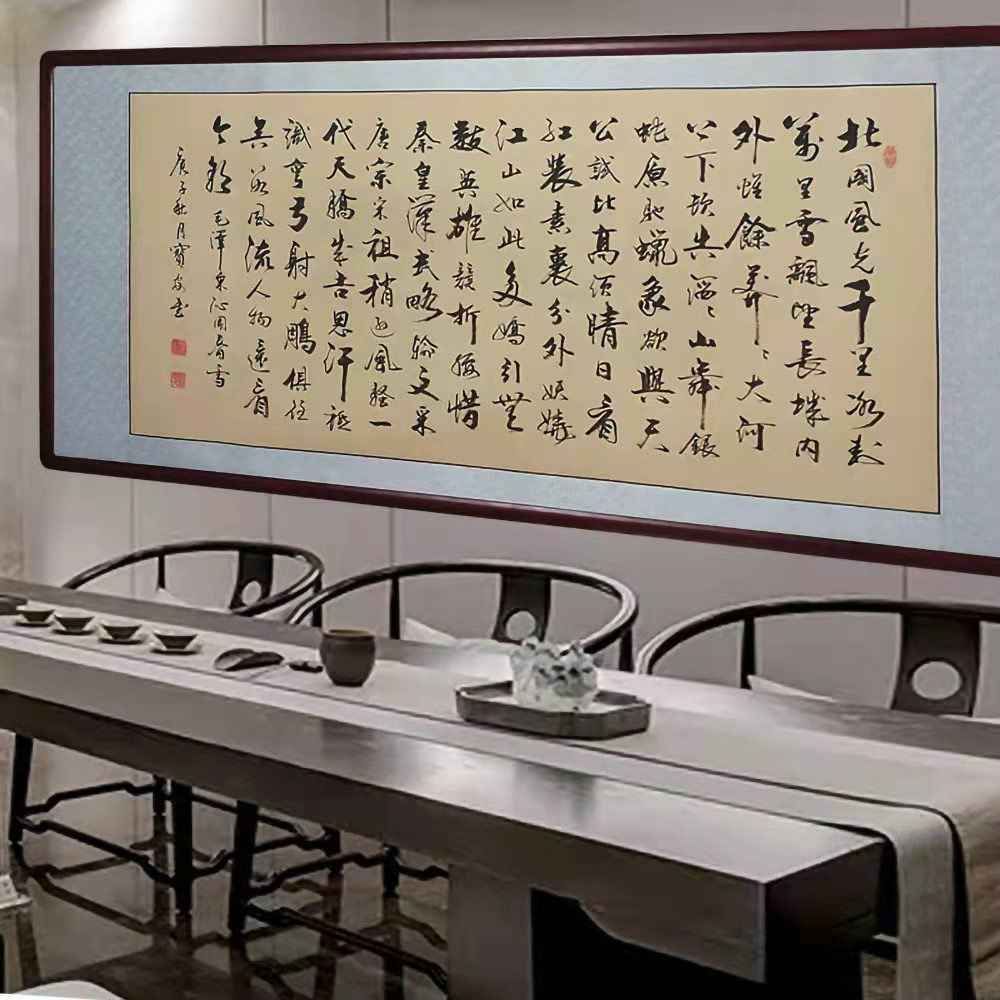 北國風光千里冰封
萬里雪飄望長城內
外惟餘莽〻大河
上下頓失滔〻山舞銀
蛇原馳蠟象欲與天
公試比高須晴日看
紅裝素裹分外妖嬈
江山如此多嬌引無
數英雄競折腰惜
秦皇漢武略輸文采
唐宗宋祖稍遜風騷一
代天驕成吉思汗祇
識彎弓射大鵰俱往
矣數風流人物還看
今朝 毛澤東沁園春雪
庚子秋月寶書